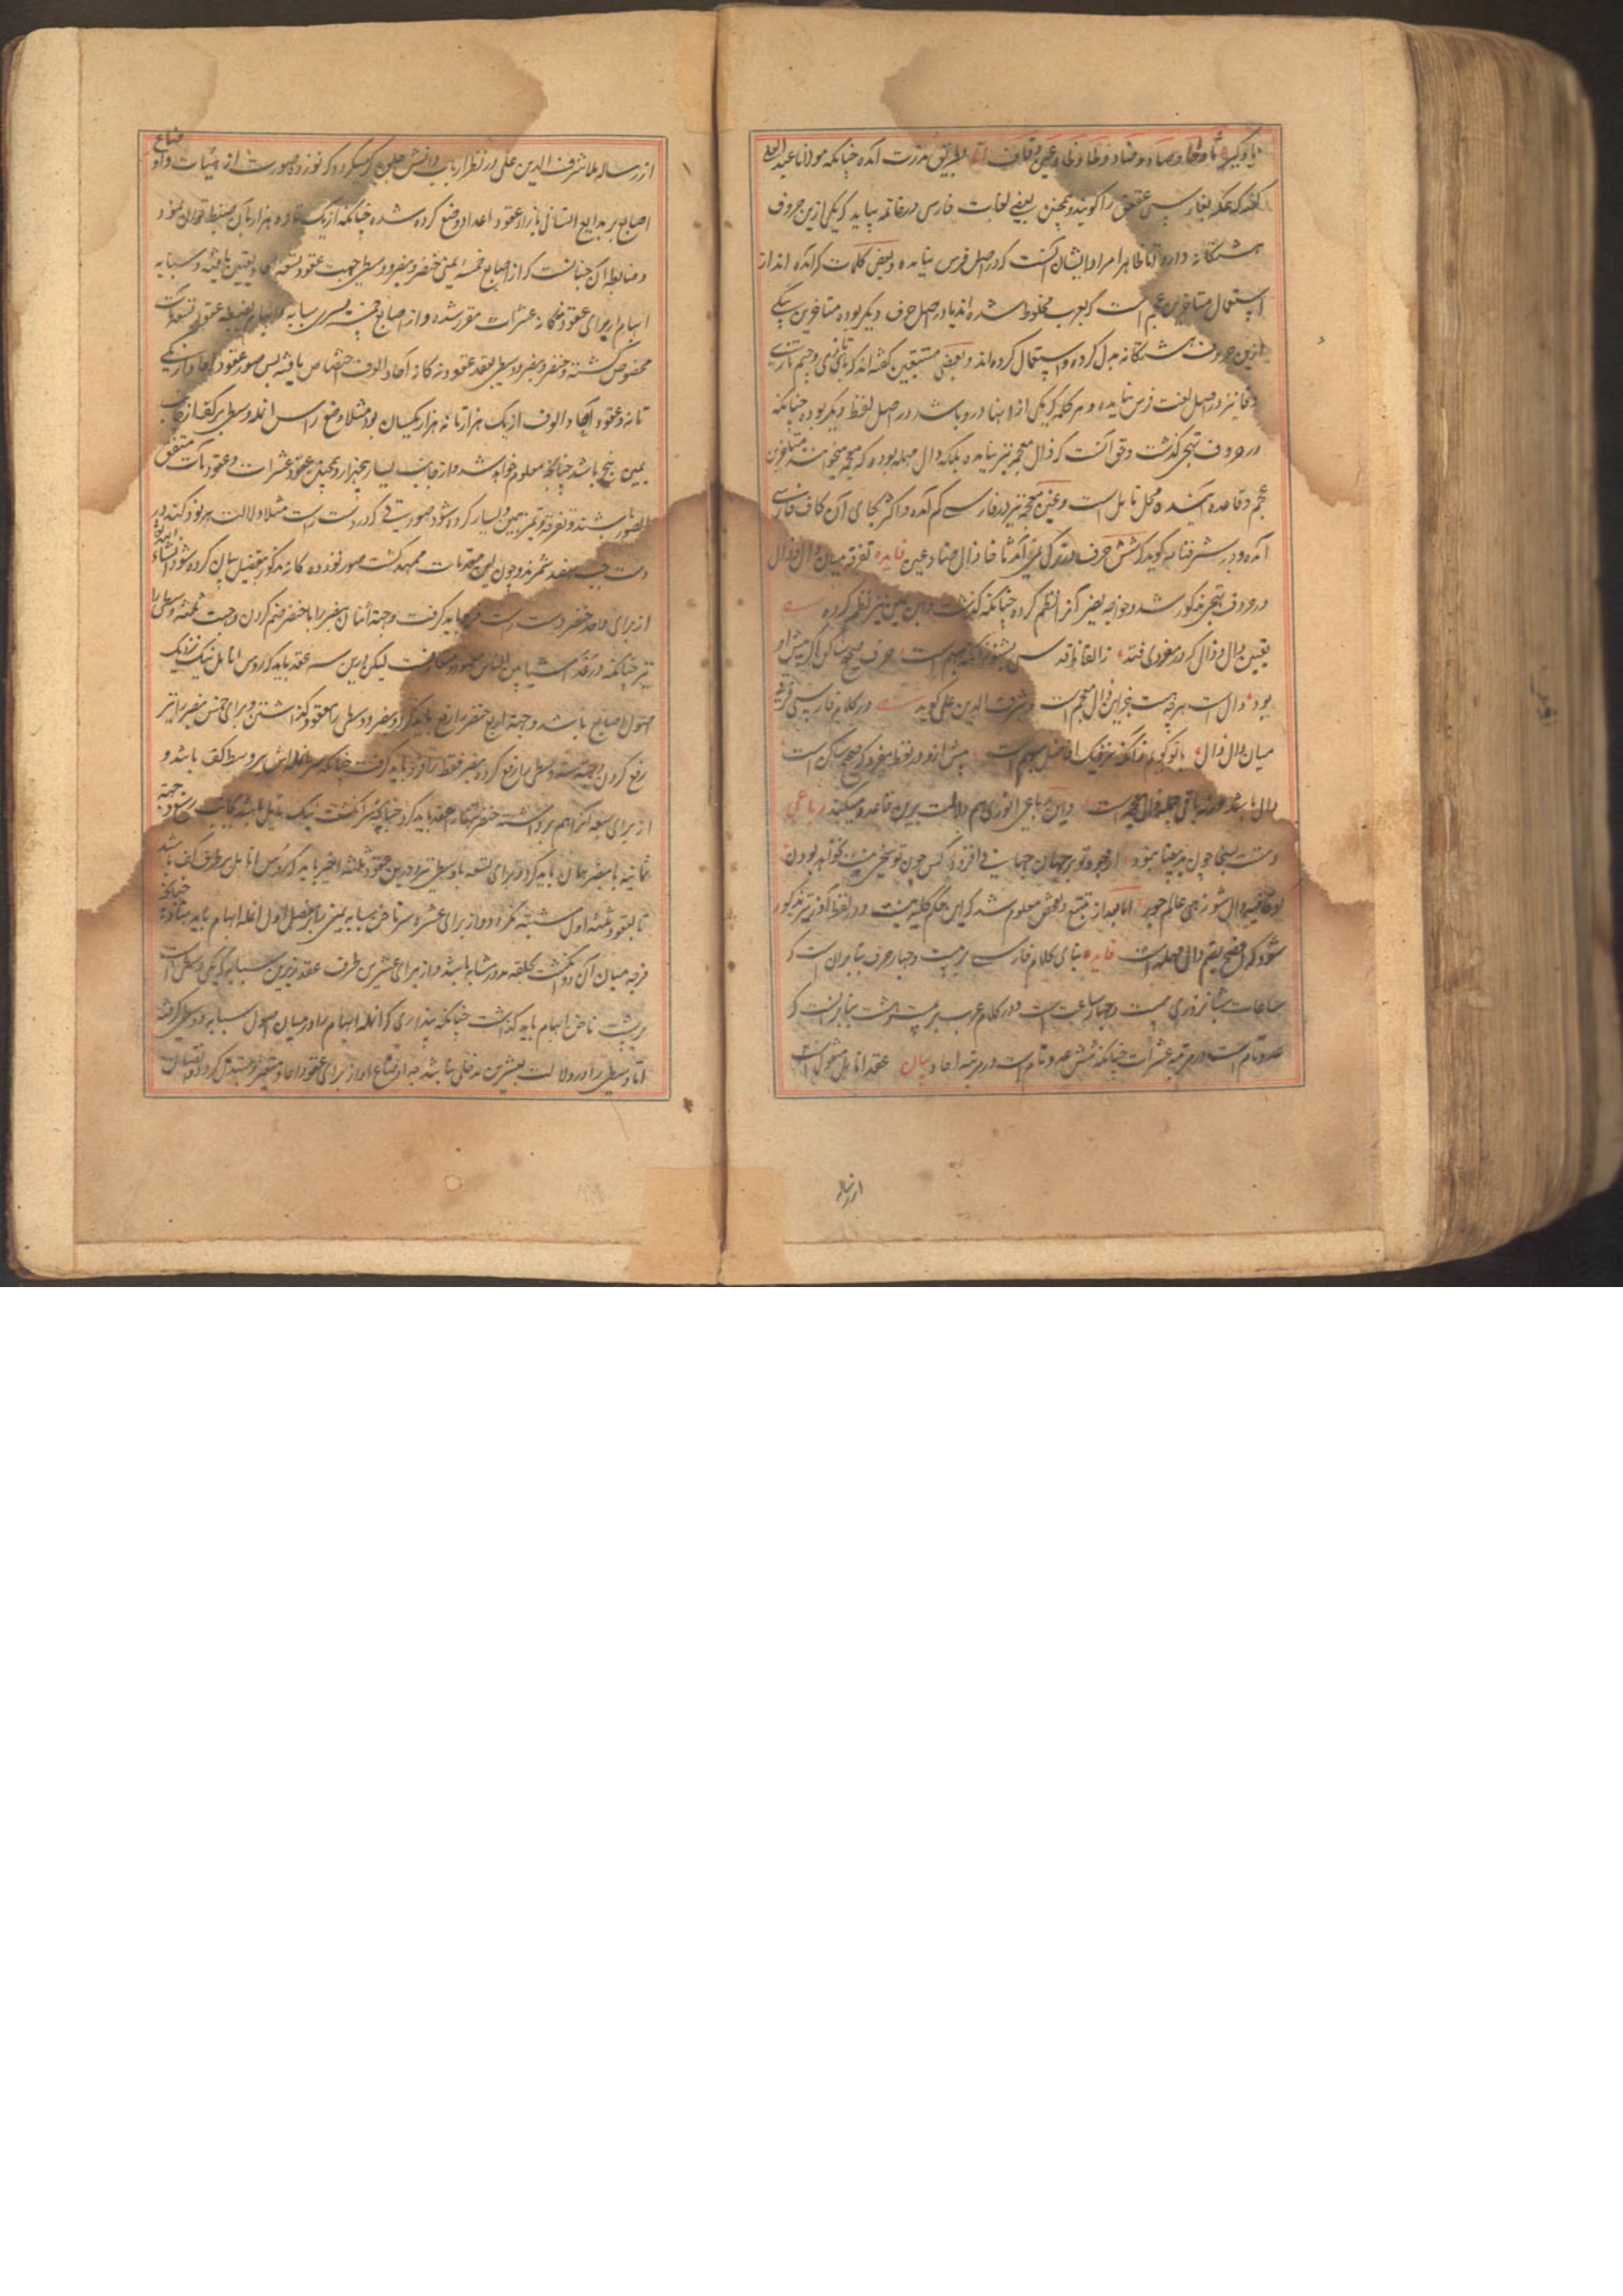 یاد گیر ثا و حا و صاد و ضاد و طا و ظا و عین و قاف اما بطریق ندرت آمده چنانکه مولانا عبد العلی
گفته که عکه بفارسی عقعق را گویند و همچنین بعضی لغات فارس در خاتمه بیاید که یکی از این حروف
هشتگانه دارد اما ظاهرا مراد ایشان آنست که در اصل فرس نیامده و بعض کلمات که آمده انداز
استعمال متاخرین عجم است که بعرب مخلوط شده اند یا در اصل حرف دیگر بوده متاخرین بیکی
ازین حروف هشتگانه بدل کرده و استعمال کرده اند و بعضی متتبعین گفته اند که
و فا نیز در اصل لغت فرس نیامده و هر کلمه که یکی از اینها درو باشد در اصل لفظ دیگر بوده چنانکه
در حروف تهجی گذشت و حق آنست که ذال معجمه نیز نیامده بلکه دال مهمله بوده که معجمه میخوانند متاخرین
عجم و قاعده آینده محل تامل است و غین معجمه نیز در فارسی کم آمده و اکثر بجای آن کاف فارسی
آمده و در شرفنامه گوید که شش حرف در ترکی نیز آمد ثا خا ذال ضاد عین فایده تفرقه میان دال و ذال
در حروف تهجی مذکور شد و خواجه نصیر آنرا نظم کرده چنانکه گذشت و ابن یمین نیز نظم کرده
تعیین دال و ذال که در مفردی فتد ز الفاظ فارسی بشنو زانکه مبهم است حرف صحیح ساکن اگر پیش او
بود دال است هرچه هست جز این ذال معجم است و شرف الدین علی گوید در کلام فارسی فرق
میان دال و ذال با تو گویم زانکه نزدیک افاضل مبهم است پیش ازو در لفظ مفرد گر صحیح ساکن است
دال باشد ورنه باقی جمله ذال معجم است و این رباعی انوری هم دلالت برین قاعده میکند رباعی
دستت بسخا چون ید بیضا بنمود از جود تو بر جهان جهانی افزود کس چون تو سخی نیست نخواهد بودن
گو قافیه دال شو زهی عالم جود اما بعد از تتبع و تفحص معلوم شد که این حکم کلیه نیست و در لفظ آذر نیز مذکور
شود که افصح بضم دال مهمله است فایده بنای کلام فارسی بر بیست و چهار حرف بنابر آن است که
ساعات شبانروزی بیست و چهار ساعت است و در کلام عرب بر بیست و هشت بنا بر آنست که
عدد تام است در مرتبه عشرات چنانکه شش عدد تام است در مرتبه احاد بیان عقد انامل منقول است
از رساله
از رساله ملا شرف الدین علی در نظر ارباب دانش جلوه گر میگردد که نوزده صورت از هیئات و اوضاع
اصابع بر بدایع انسانی بازاء عقود اعداد وضع کرده شده چنانکه از یک تا ده هزار بآن ضبط توان نمود
و ضابطه آن چنانست که از اصابع خمسه یمنی خنصر و بنصر و وسطی جهت عقود تسعه احاد تعیین یافته و سبابه
ابهام از برای عقود نه گانه عشرات مقرر شده و از اصابع خمسه یسری سبابه و ابهام بضبط عقود تسعه مآت
مخصوص گشته و خنصر و بنصر و وسطی بعقد عقود نه گانه آحاد الوف اختصاص یافته پس صور عقود آحاد از یکی
تا نه و عقود آحاد الوف از یک هزار تا نه هزار یکسان بود مثلا وضع راس انمله وسطی بر کف از جانب
یمین پنج باشد چنانچه معلوم خواهد شد و از جانب یسار پنجهزار و همچنین عقود عشرات و عقود مآت متفق
الصور باشند و تفرقه و تمیز بیمین و یسار کرده شود صورتی که در دست راست مثلا دلالت بر نود کند در
دست چپ نهصد شمرند و چون این مقدمات ممهد گشت صور نوزده گانه مذکور بتفصیل بیان کرده شود انشاء الله
از برای واحد خنصر دست راست فرو باید گرفت و جهة اثنان بنصر را با خنصر ضم کردن و جهت ثلثه وسطی را
نیز چنانکه در عد اشیا بین الناس معهود و متعارف است لیکن درین سه عقد باید که رؤس انامل نیک نزدیک
اصول اصابع باشد و جهة اربع خنصر را رفع باید کرد و بنصر و وسطی را معقود گذاشتن و برای خمس بنصر را نیز
رفع کردن و جهت سته وسطی را رفع کرده بنصر فقط را فرو باید گرفت چنانکه سر انمله اش بر وسط کف باشد و
از برای سبعه آنرا هم برداشته خنصر تنها را عقد باید کرد چنانچه سر انگشت نیک مایل باشد بجانب رسغ و جهة
ثمانیه با بنصر همان باید کرد و برای تسعه با وسطی نیز و درین عقود ثلثه اخیر باید که رؤس انامل بر طرف کف باشد
تا بعقود ثلثه اول مشتبه نگردد و از برای عشره سر ناخن سبابه یمنی را بر مفصل اول انمله ابهام باید نهاد چنانچه
فرجه میان آن دو انگشت بحلقه مدور مشابه باشد و از برای عشرین طرف عقد زیرین سبابه که یلی وسطی است
بر پشت ناخن ابهام باید گذاشت چنانکه پنداری که انمله ابهام را در میان اصول سبابه و وسطی گرفته
اما وسطی را در دلالت بعشرین مدخلی نباشد چه اوضاع او از برای عقود احاد متغیر و متبدل گردد و اتصال